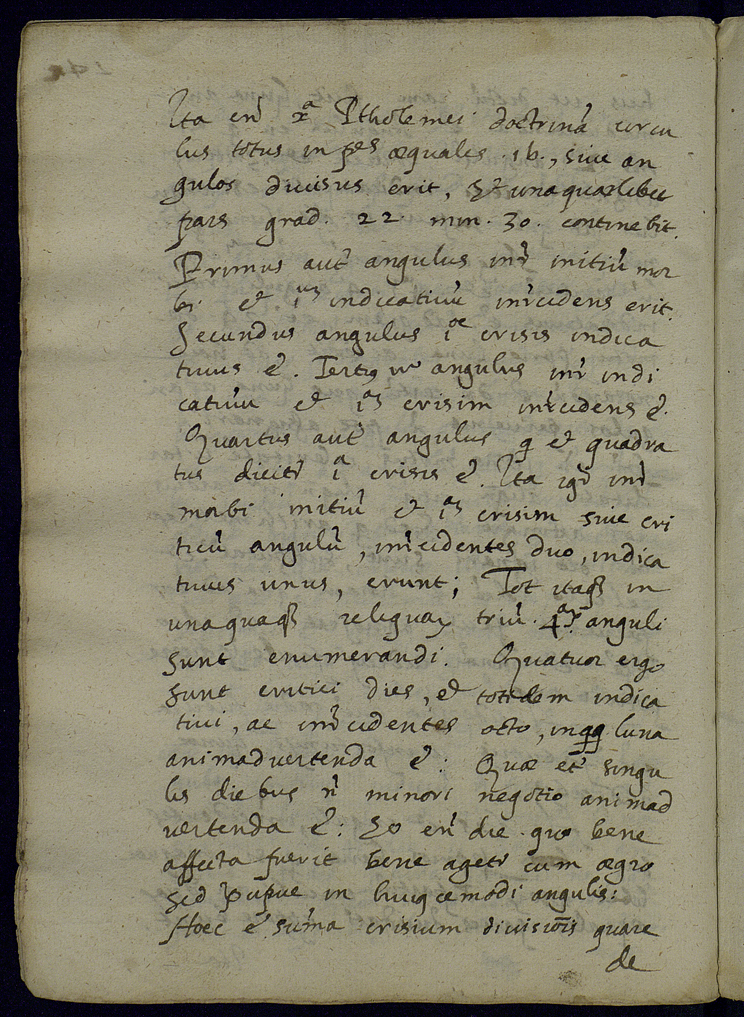 Ita en̄ xᵃ Ptholemei doctrinā circu
lus totus in pᵉˢ æquales .16., siue an
gulos diuisus erit, & unaquælibet
pars grad. 22 min. 30. continebit.
Primus aut̄ angulus int̄ initiū mor
bi & iᵘᵐ indicatiuū int̄cidens erit.
Secundus angulus iᵒᵉ crisis indica
tiuus ē. Tertiꝰ uᵒ angulus int̄ indi
catiuū & iᵃᵐ crisim int̄cidens ē.
Quartus aut̄ angulus q & quadra
tus dicit̄ iᵃ crisis ē. Ita igr̄ int̄
morbi initiū & iᵃᵐ crisim siue cri
ticū angulū, int̄cidentes duo, indica
tiuus unus, erunt; Tot itaqꝫ in
unaquaqꝫ reliquaꝝ triū 4ᵃʳ. anguli
sunt enumerandi. Quatuor ergo
sunt critici dies, & totidem indica
tiui, ac int̄cidentes octo, in luna
animaduertenda ē: Quæ et̄ singu
lis diebus n̄ minori negotio animad
uertenda ē: So en̄ die quo bene
affecta fuerit bene aget̄ cum ægro
sed in huiꝰcemodi angulis:
Hoec ē sum̄a crisium diuisiōis quare
de